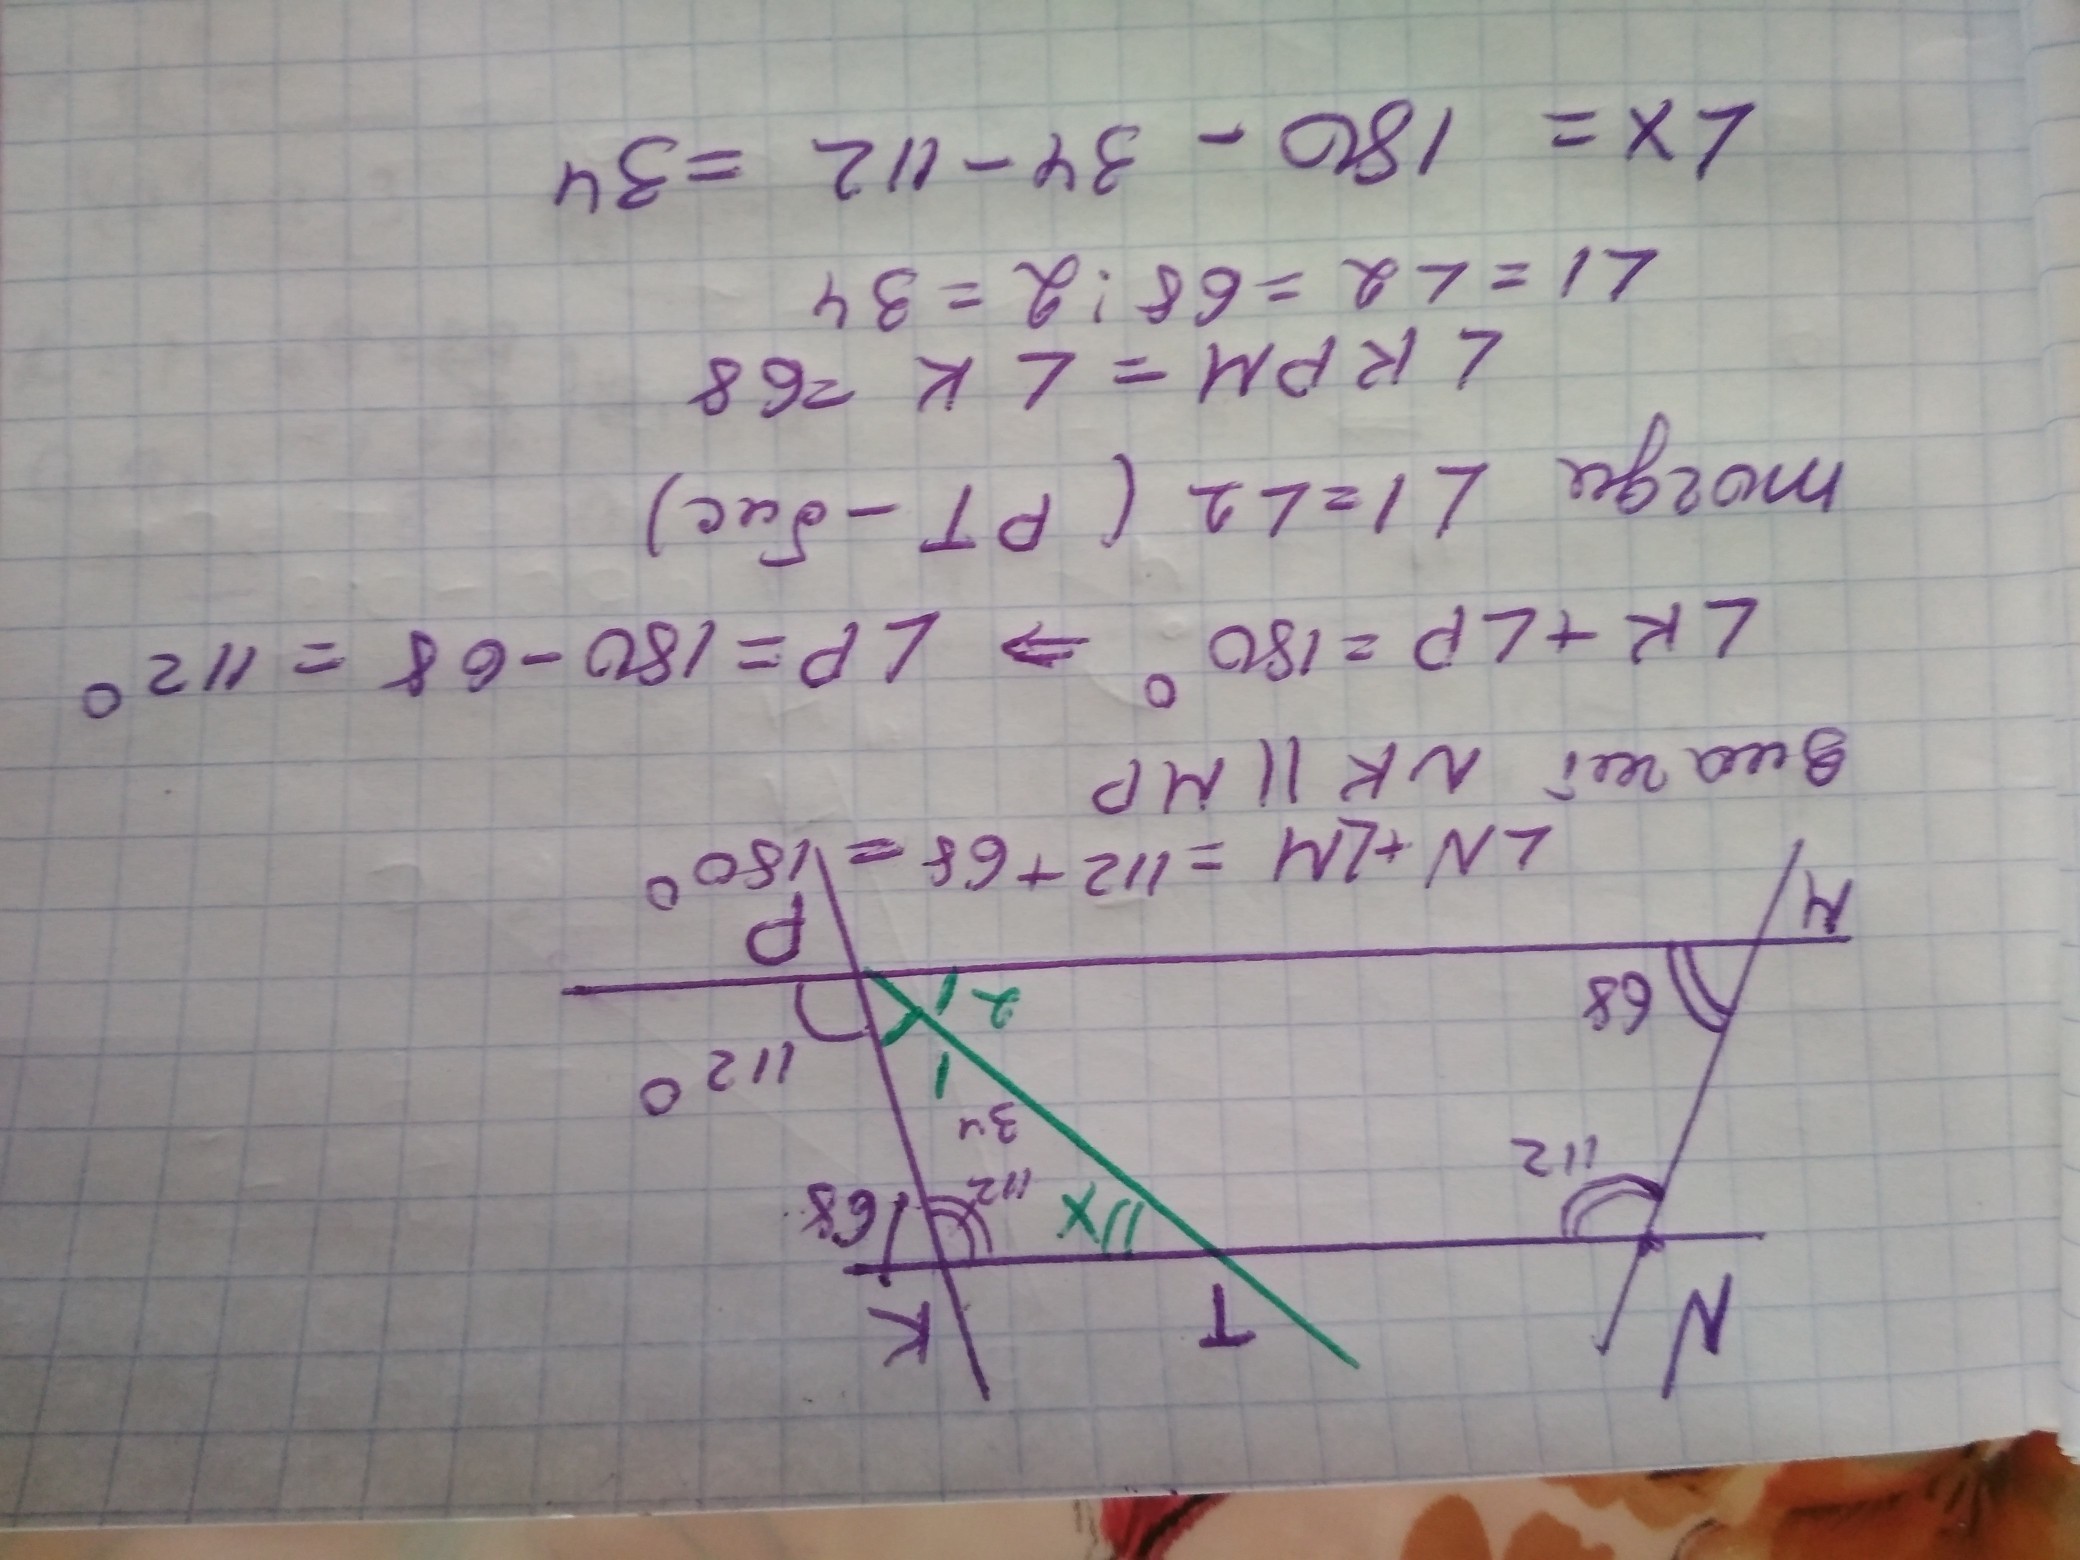 N T K
112 X 112 68
34
1
112°
68 2
M P
∠N + ∠M = 112 + 68 = 180°
Значит NK || MP
∠K + ∠P = 180° ⇒ ∠P = 180 - 68 = 112°
тогда ∠1 = ∠2 (PT - бис)
∠KPM = ∠K = 68
∠1 = ∠2 = 68 : 2 = 34
∠X = 180 - 34 - 112 = 34